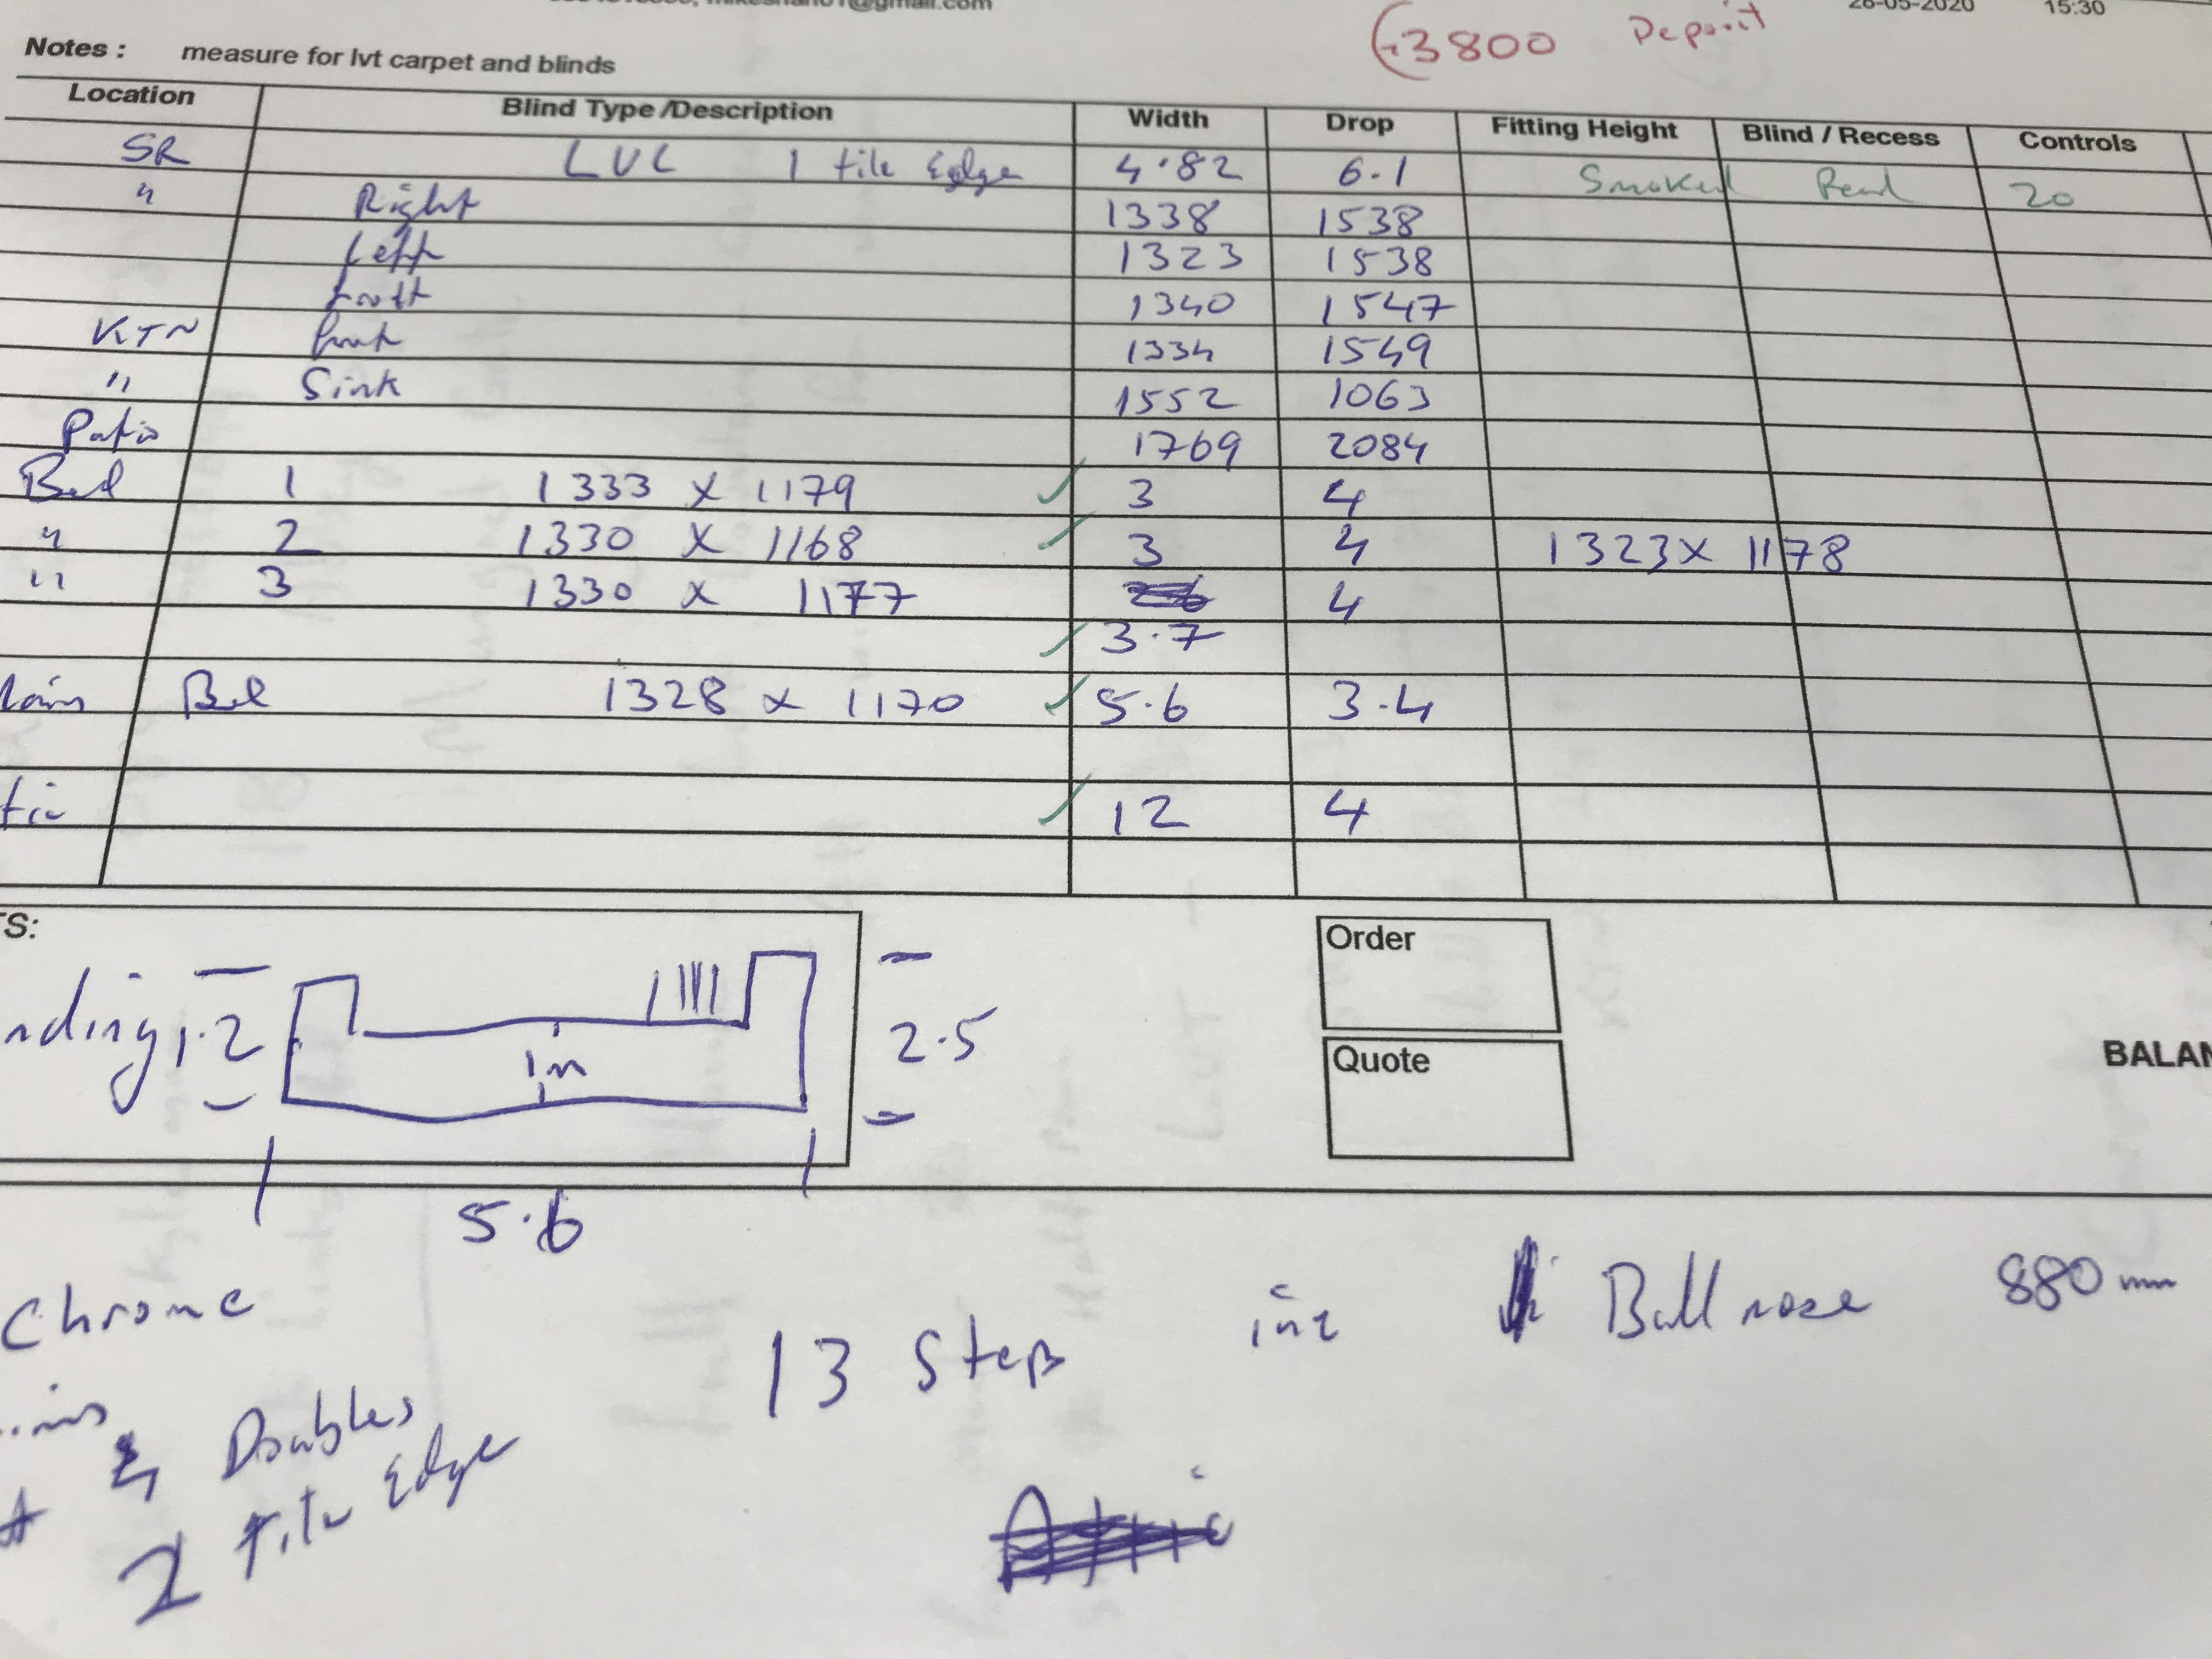 28-05-2020 15:30
3800 Deposit
Notes : measure for lvt carpet and blinds
Location Blind Type /Description Width Drop Fitting Height Blind / Recess Controls
SR LVL 1 tile Edge 4.82 6.1 Smoked 20
" Right 1338 1538
Left 1323 1538
1340 1547
KTN 1334 1549
" Sink 1552 1063
Patio 1769 2084
Bed 1 1333 x 1179 ✓ 3 4
" 2 1330 x 1168 ✓ 3 4 1323 x 1178
" 3 1330 x 1177 4
✓ 3.7
Bed 1328 x 1170 ✓ 5.6 3.4
✓ 12 4
Order
1.2 1m 2.5
Quote
5.6
Chrome
13 Steps inc Bullnose 880mm
4 Doubles
2 Tile Edge